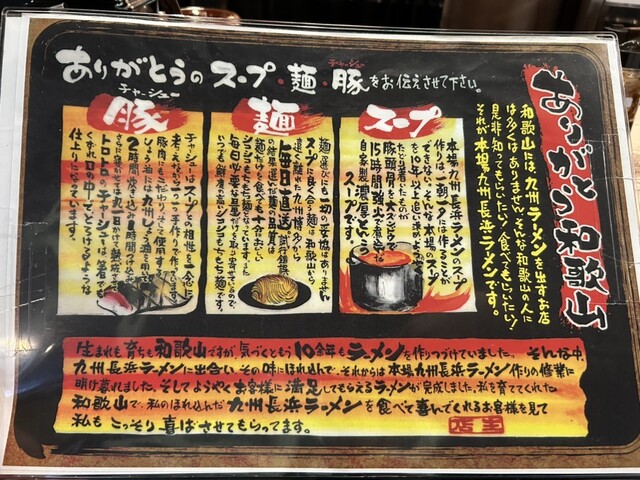 ありがとうのスープ・麺・豚をお伝えさせて下さい。
チャーシュー
ありがとう和歌山
和歌山には、九州ラーメンを出すお店
は多くはありません。そんな和歌山の人に
是非知ってもらいたい!食べてもらいたい!
それが、本場九州長浜ラーメンです。
スープ
本場九州長浜ラーメンのスープ
作りは一朝一夕に作ることが
できない。そんな本場のスープ
を10年以上追い求め、ようやく
たどり着いたものが
豚頭・豚骨を大スピンドで
15時間強火で煮出した
自家製濃厚とんこつ
スープです。
麺
麺選びにも一切の妥協はありません
スープに良く合う麺は和歌山から
遠く離れた九州博多から
毎日直送
試行錯誤
の結果選んだ麺の品質は
麺だけで食べても十分おいしい
シコシコもちもち麺となっています。
毎日必要な量だけを取り寄せているので、
いつも鮮度の高いシコシコもちもち麺です。
チャーシュー
豚
チャーシューはスープとの相性を一番に
考えながら一つ一つ手作りで作っています。
豚肉にもこだわりを持って使用する
しょう油には九州しょう油を用いて
2時間炊き込み8時間つけ込み
さらに寝かせては丸一日かけて熟成させた
トロトロのチャーシューは箸でも
くずれ口の中でとろけるような
仕上りになっています。
生まれも育ちも和歌山ですが、気づくともう10余年もラーメンを作りつづけていました。そんな中、
九州長浜ラーメンに出会い、その味にほれ込んで、それからは本場九州長浜ラーメン作りの修業に
明け暮れました。そしてようやくお客様に満足してもらえるラーメンが完成しました。私を育ててくれた
和歌山で、私のほれ込んだ九州長浜ラーメンを食べて喜んでくれるお客様を見て
私もこっそり喜ばさせてもらってます。
店主